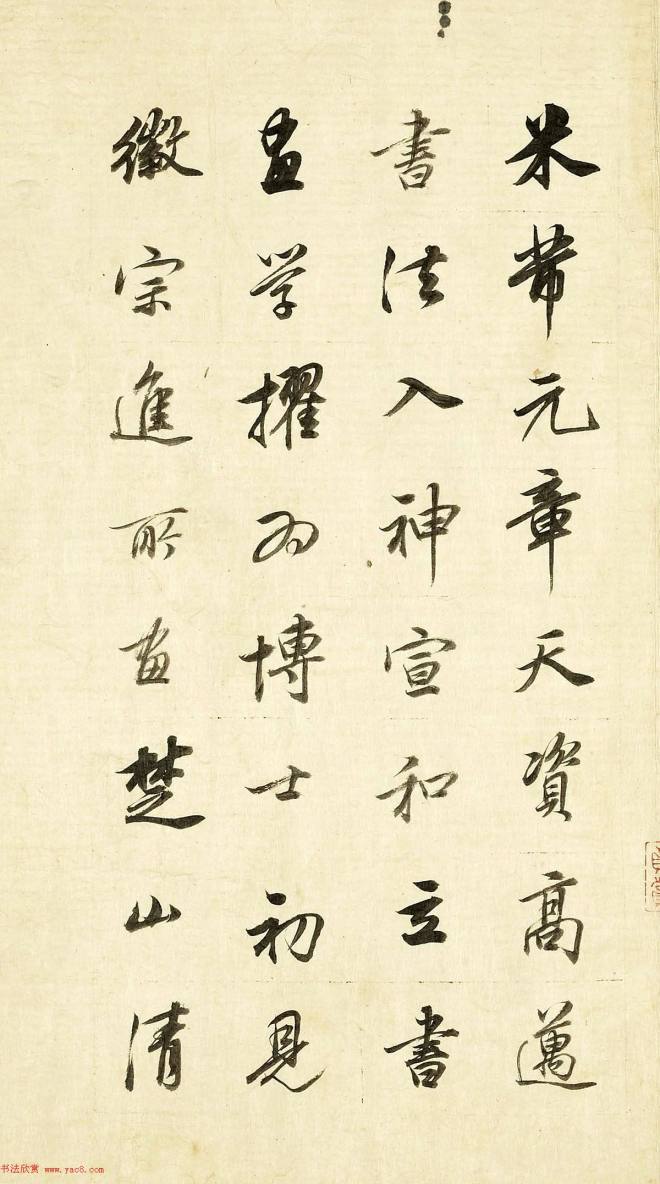 米芾元章天資高邁
書法入神宣和立書
畫學擢為博士初見
徽宗進所畫楚山清
书法欣赏 www.yac8.com